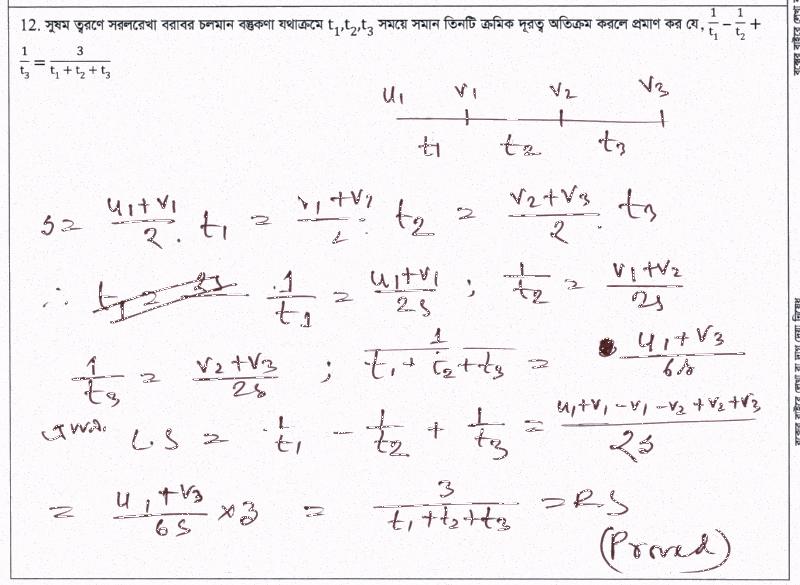 12. সুষম ত্বরণে সরলরেখা বরাবর চলমান বস্তুকণা যথাক্রমে t₁,t₂,t₃ সময়ে সমান তিনটি ক্রমিক দূরত্ব অতিক্রম করলে প্রমাণ কর যে, 1/t₁ − 1/t₂ +
1/t₃ = 3/(t₁ + t₂ + t₃)
u₁ v₁ v₂ v₃
t₁ t₂ t₃
s = (u₁+v₁)/2 . t₁ = (v₁+v₂)/2 . t₂ = (v₂+v₃)/2 . t₃
∴ 1/t₁ = (u₁+v₁)/2s ; 1/t₂ = (v₁+v₂)/2s
1/t₃ = (v₂+v₃)/2s ; 1/(t₁+t₂+t₃) = (u₁+v₃)/6s
L.S = 1/t₁ − 1/t₂ + 1/t₃ = (u₁+v₁−v₁−v₂+v₂+v₃)/2s
= (u₁+v₃)/6s ×3 = 3/(t₁+t₂+t₃) = R.S
(Proved)